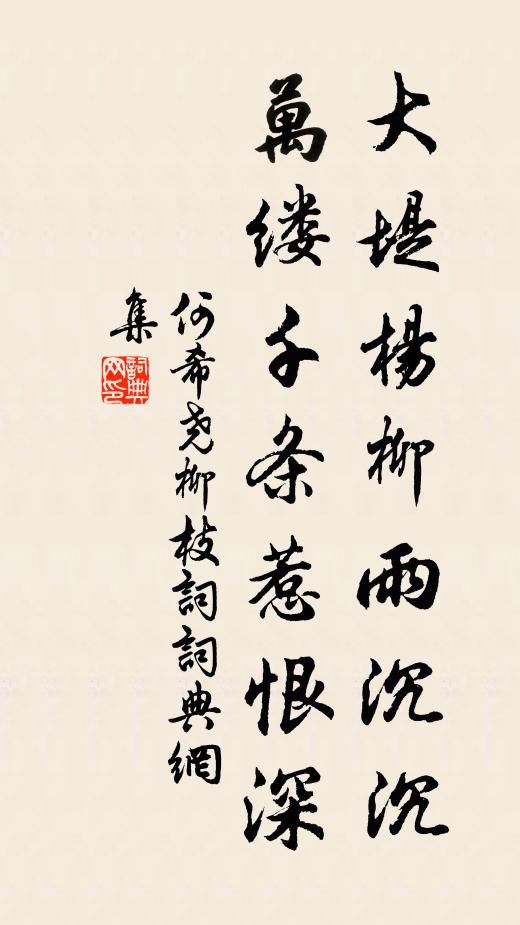 大堤楊柳雨沉沉
萬缕千条惹恨深
何希尧柳枝詞詞典網
集
詞典
网印